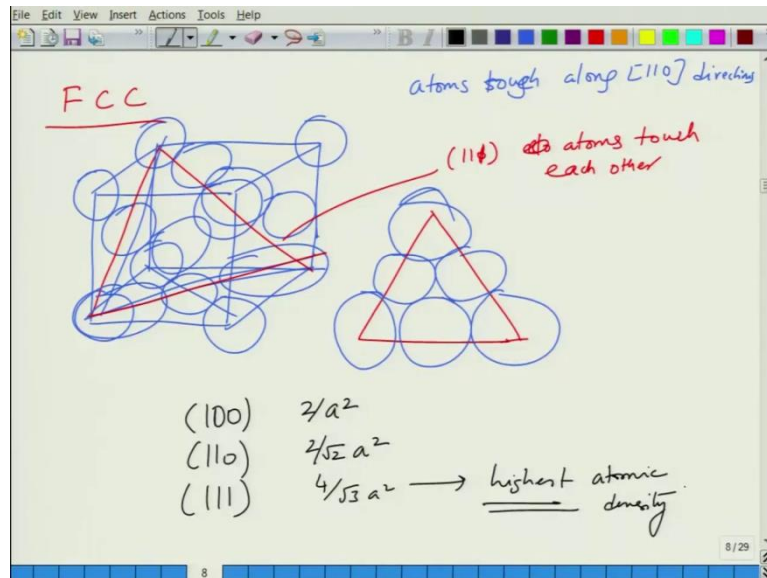 File Edit View Insert Actions Tools Help
B I
atoms tough along [110] directions
FCC
(111) atoms touch
each other
(100) 2/a²
(110) 2/√2 a²
(111) 4/√3 a² → highest atomic
density
8/29
8